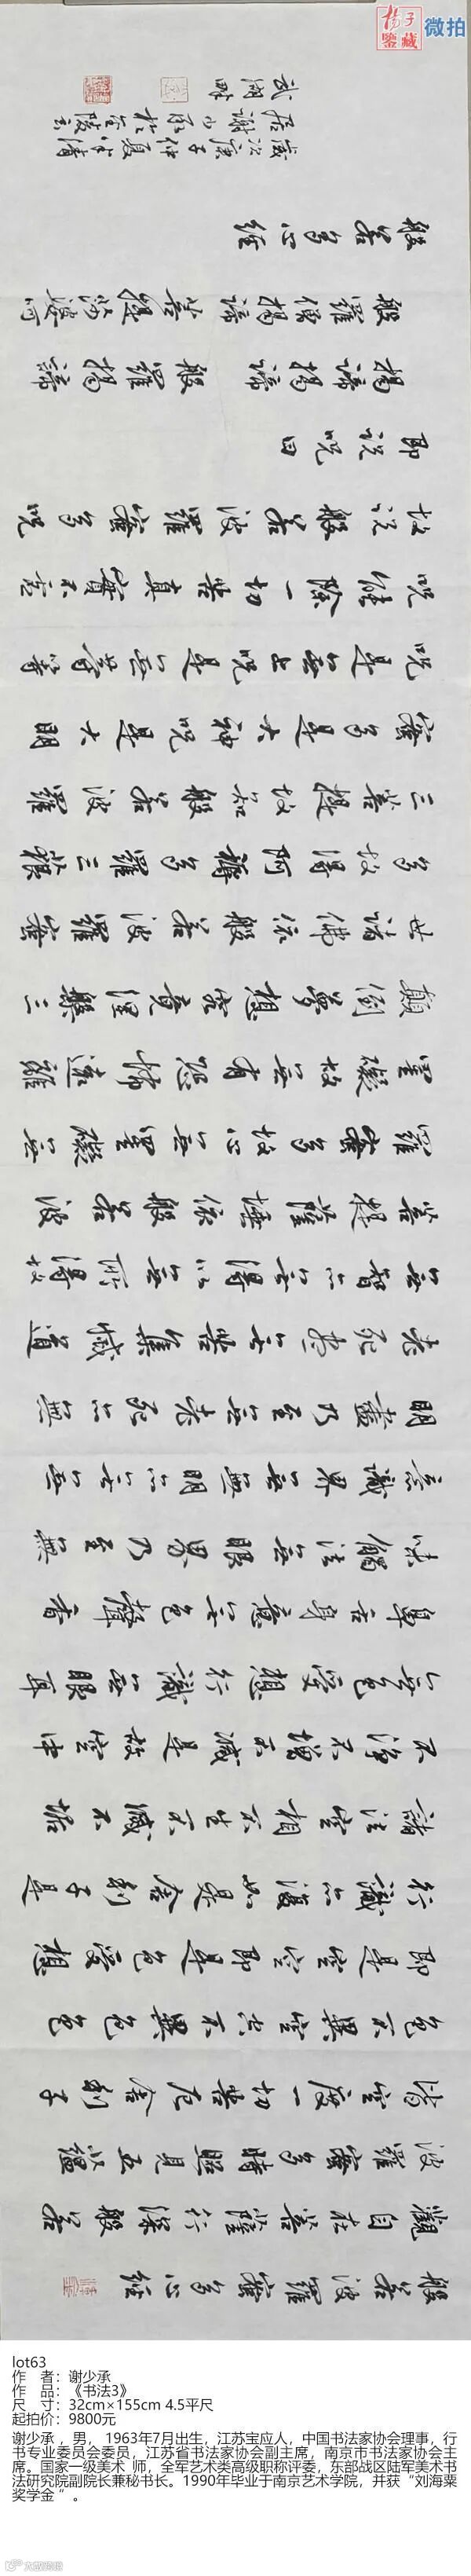 杨子
鉴藏
微拍
般若波羅蜜多心經
觀自在菩薩行深般若
波羅蜜多時照見五蘊
皆空度一切苦厄舍利子
色不異空空不異色色
即是空空即是色受想
行識亦復如是舍利子是
諸法空相不生不滅不垢
不淨不增不減是故空中
無色受想行識無眼耳
鼻舌身意無色聲香
味觸法無眼界乃至無
意識界無無明亦無無
明盡乃至無老死亦無
老死盡無苦集滅道
無智亦無得以無所得故
菩提薩埵依般若波
羅蜜多故心無罣礙無
罣礙故無有恐怖遠離
顛倒夢想究竟涅槃三
世諸佛依般若波羅蜜
多故得阿耨多羅三藐
三菩提故知般若波羅
蜜多是大神咒是大明
咒是無上咒是無等等
咒能除一切苦真實不虛
故説般若波羅蜜多咒
即説咒曰
揭諦揭諦 般羅揭諦
般羅僧揭諦菩提莎婆訶
般若多心經
歲次庚子仲夏半清
居謝少承於金陵玄
武湖畔
lot63
作 者：谢少承
作 品：《书法3》
尺 寸：32cm×155cm 4.5平尺
起拍价：9800元
谢少承 ，男， 1963年7月出生，江苏宝应人，中国书法家协会理事，行
书专业委员会委员，江苏省书法家协会副主席，南京市书法家协会主
席。国家一级美术 师，全军艺术类高级职称评委，东部战区陆军美术书
法研究院副院长兼秘书长。1990年毕业于南京艺术学院，并获“刘海粟
奖学金 ”。